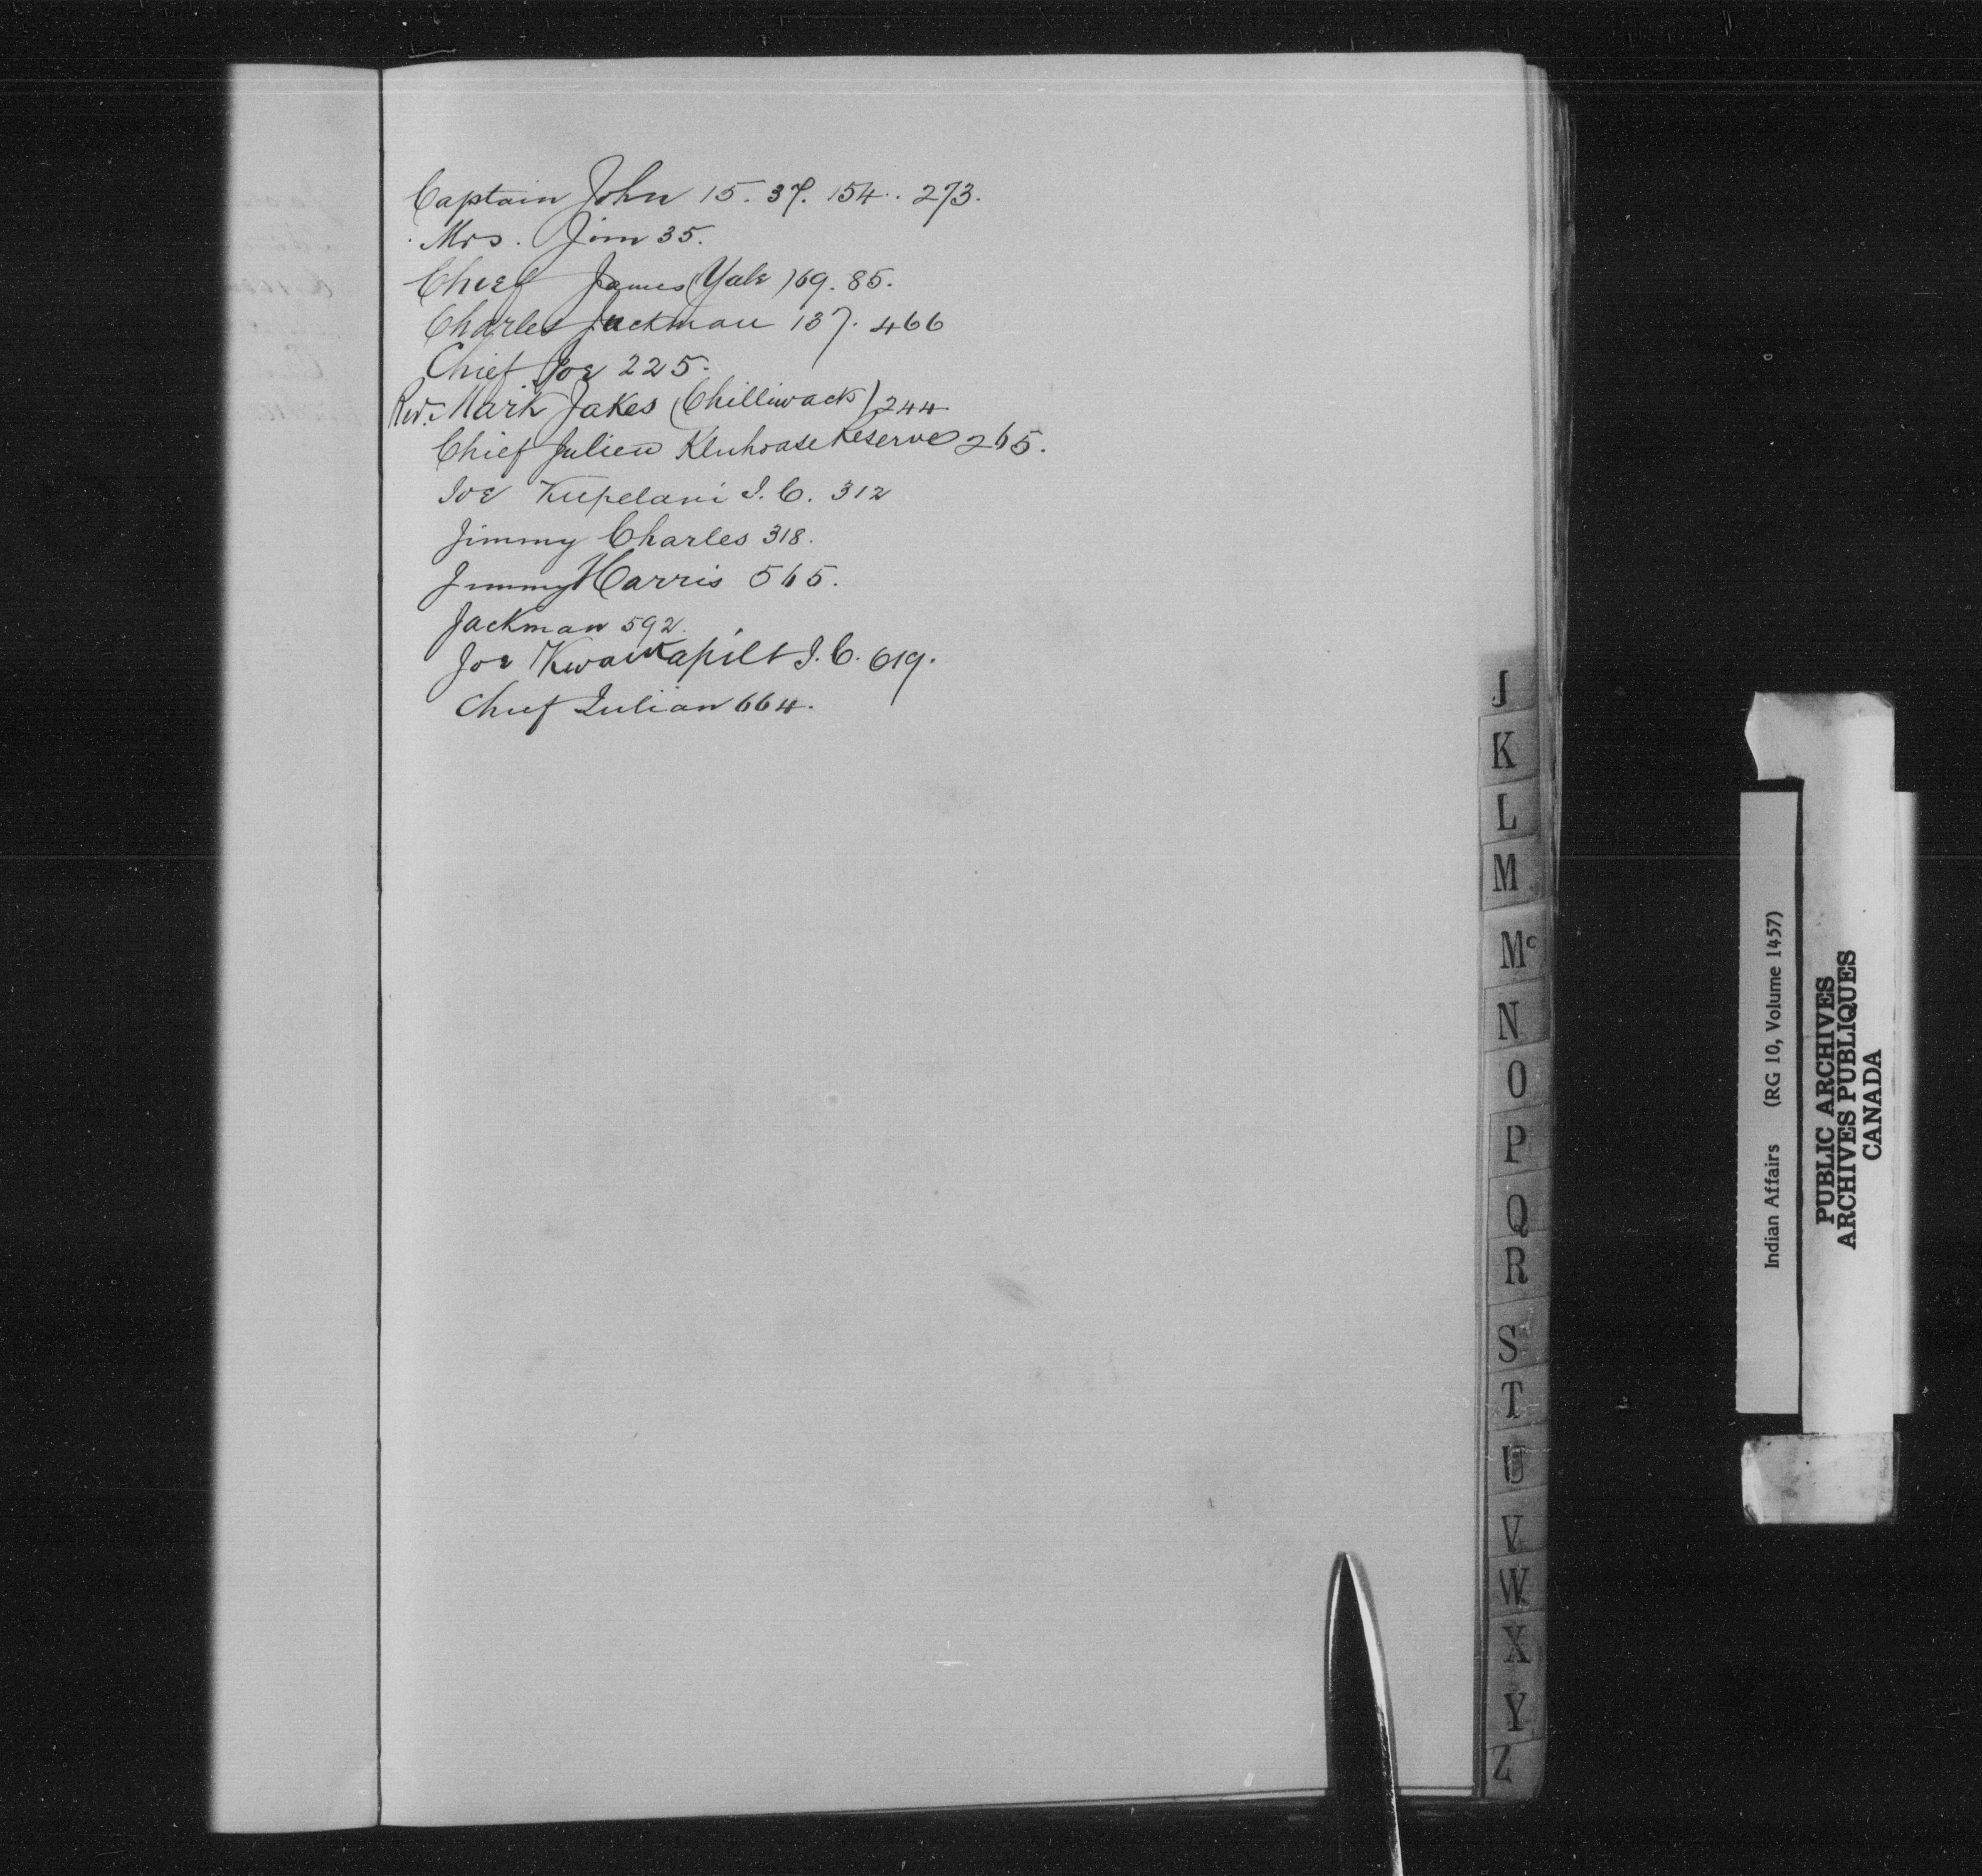 Captain John 15. 37. 154. 273.
Mrs. Jim 35.
Chief James (Yale) 69. 85.
Charles Jackman 137. 466
Chief Joe 225.
Rev. Mark Jakes (Chilliwack) 244
Chief Julien Reserve 265.
Joe I.C. 312
Jimmy Charles 318.
Jimmy Harris 565.
Jackman 592.
Joe I.C. 619.
Chief Julian 664.
J
K
L
M
Mc
N
O
P
Q
R
S
T
U
V
W
X
Y
Z
Indian Affairs (RG 10, Volume 1457)
PUBLIC ARCHIVES
ARCHIVES PUBLIQUES
CANADA